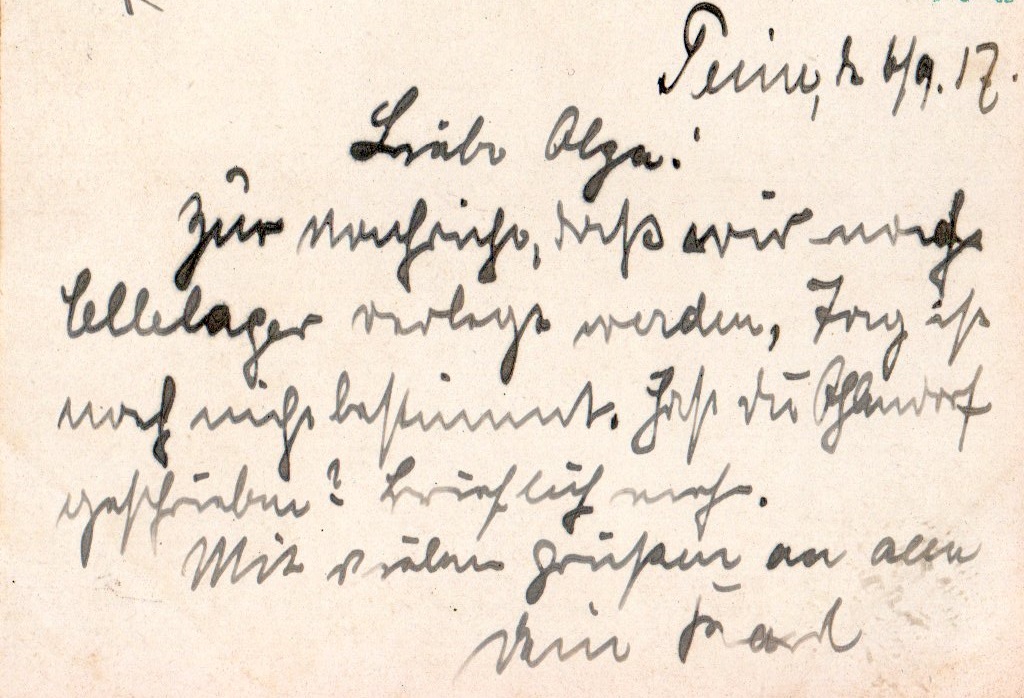 Peine, d. 6/9.17.
Liebe Olga!
Zur Nachricht, daß wir nach
Cellelager verlegt werden, Tag ist
noch nicht bestimmt. Hast du
geschrieben? Brieflich mehr.
Mit vielen Grüßen an alle
dein Karl